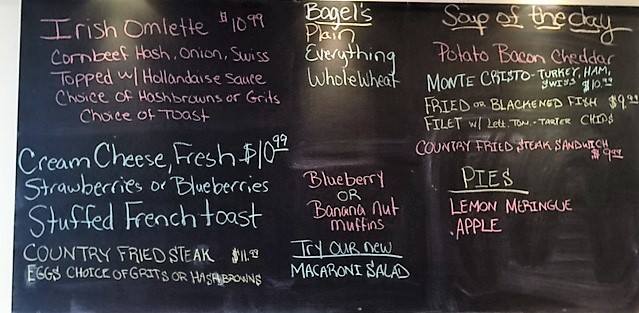 Irish Omlette $10.99
Cornbeef Hash, Onion, Swiss
Topped w/ Hollandaise Sauce
Choice of Hashbrowns or Grits
Choice of Toast
Cream Cheese, Fresh $10.99
Strawberries or Blueberries
Stuffed French toast
COUNTRY FRIED STEAK $11.99
EGGS CHOICE OF GRITS OR HASHBROWNS
Bagel's
Plain
Everything
Whole Wheat
Blueberry
OR
Banana nut
muffins
Try our new
MACARONI SALAD
Soup of the day
Potato Bacon Cheddar
MONTE CRISTO - TURKEY, HAM,
SWISS $10.99
FRIED OR BLACKENED FISH $9.99
FILET w/ Lett. TOM. - TARTER CHIPS
COUNTRY FRIED STEAK SANDWICH
$9.99
PIES
LEMON MERINGUE
APPLE